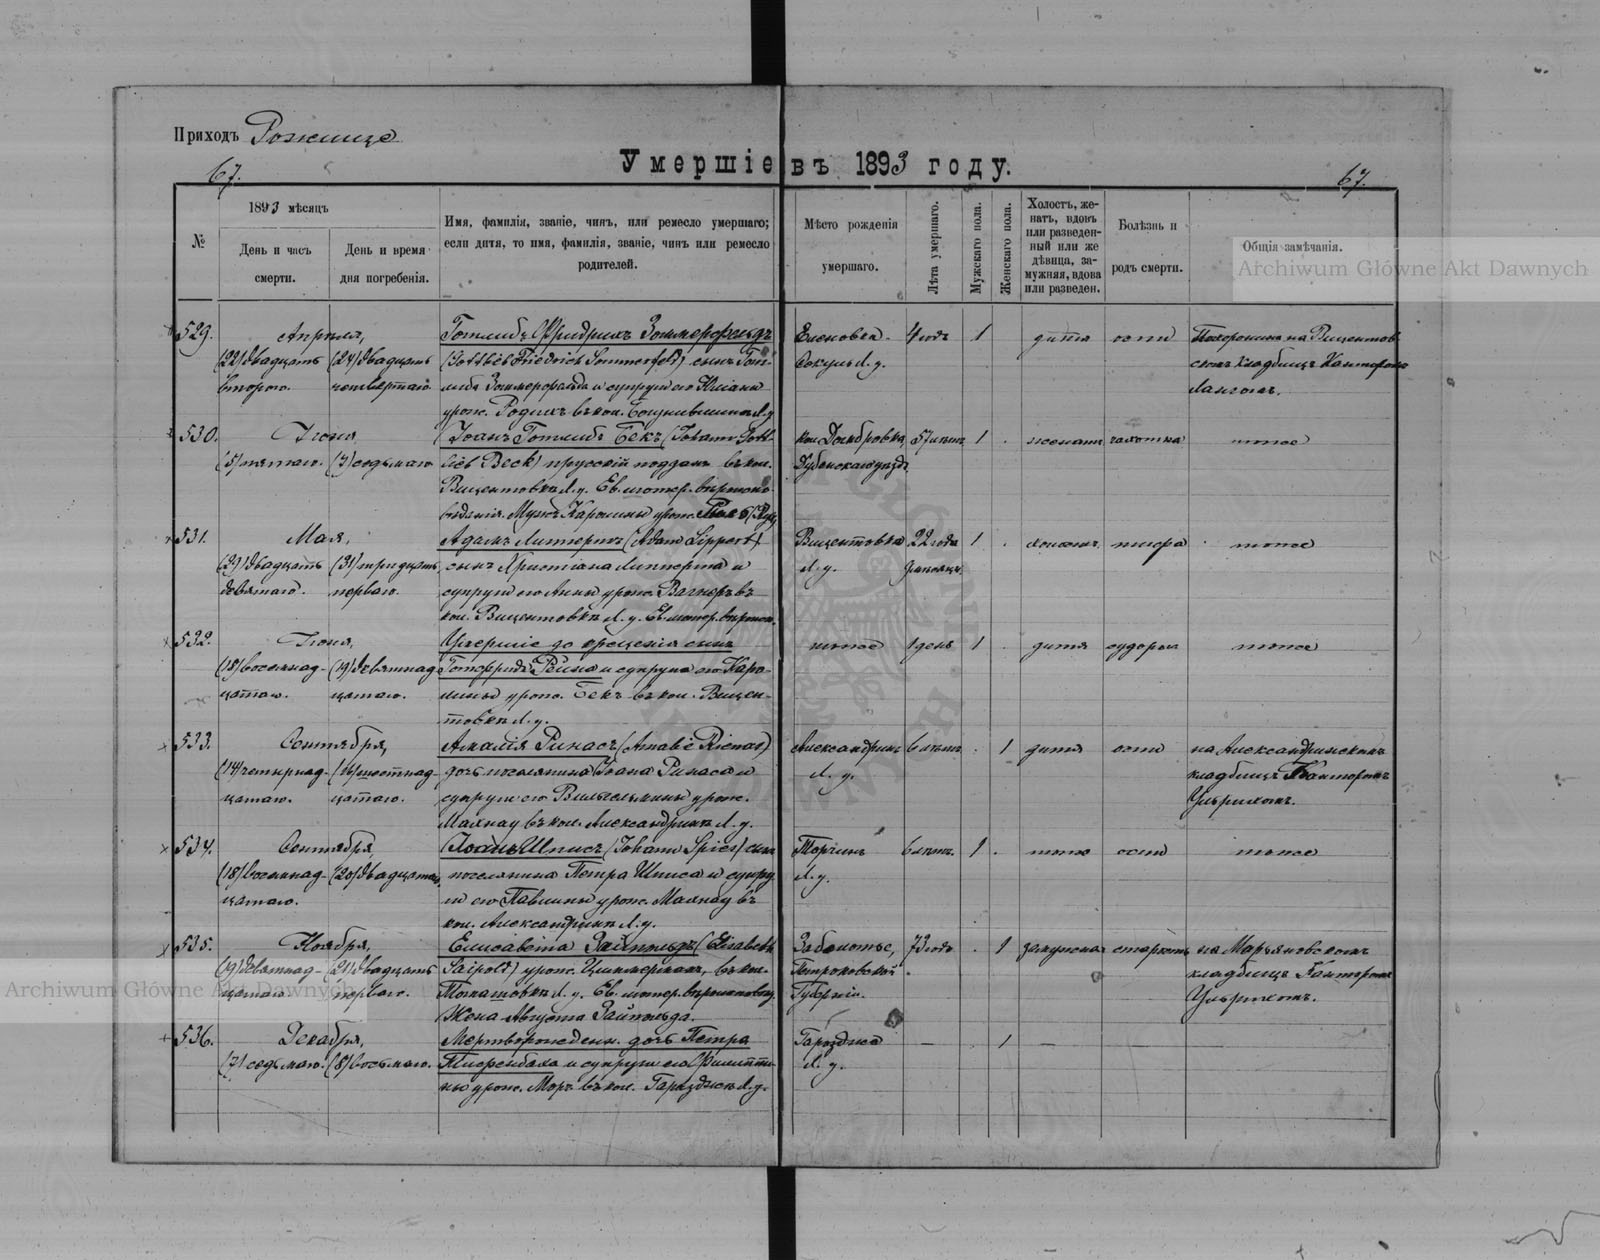 Приходъ Рожище
67.
Умершіе въ 1893 году.
67.
№
1893 мѣсяцъ
День и часъ смерти.
День и время дня погребенія.
Имя, фамилія, званіе, чинъ, или ремесло умершаго;
если дитя, то имя, фамилія, званіе, чинъ или ремесло
родителей.
Мѣсто рожденія
умершаго.
Лѣта умершаго.
Мужскаго пола.
Женскаго пола.
Холостъ, же-
натъ, вдовъ
или разведен-
ный или же
дѣвица, за-
мужняя, вдова
или разведен.
Болѣзнь и
родъ смерти.
Общія замѣчанія.
Archiwum Główne Akt Dawnych
529.
Апрѣля,
(22) двадцать
втораго.
(24) двадцать
четвертаго.
Готлибъ Фридрихъ Зоммерфельдъ
(Gottlieb Friedrich Sommerfeld) сынъ Гот-
либа Зоммерфельда и супруги его
урож. въ кол.
Еленовка
4 года
1
дитя
оспа
Похороненъ на Вицентов-
скомъ кладбищѣ Канторомъ
Лангомъ.
530.
Іюня,
(5) пятаго.
(7) седьмаго
Іоанъ Готлибъ Бекъ (Johann Gott-
lieb Beck) прусскій поддан. въ кол.
Вицентовкѣ Л. у. Ев. лютер. вѣроиспо-
вѣданія. Мужъ Каролины урож.
кол. Домбровка,
Дубенскаго уѣзда
57 лѣтъ
1
женатъ
чахотка
тоже
531.
Мая,
(29) двадцать
девятаго.
(31) тридцать
перваго.
Адамъ Липпертъ (Adam Lippert)
сынъ Христіана Липперта и
супруги его Анны урож. Вагнеръ въ
кол. Вицентовкѣ Л. у. Ев. лютер.
Вицентовка
Л. у.
22 года
1
холостъ
тифъ
тоже
532.
Іюня,
(18) восемнад-
цатаго.
(19) девятнад-
цатаго.
Умершіе до крещенія сынъ
Готфрида Рейна и супруги его Каро-
лины урож. Бекъ въ кол. Вицен-
товкѣ Л. у.
тоже
1 день
1
дитя
судорги
тоже
533.
Сентября,
(14) четырнад-
цатаго.
(16) шестнад-
цатаго.
Амалія Ринасъ (Amalie Rienas)
дочь поселянина Іоана Ринаса и
супруги его Вильгельмины урож.
Малнау въ кол. Александринѣ Л. у.
Александринъ
Л. у.
6 лѣтъ
1
дитя
оспа
на Александринскомъ
кладбищѣ Канторомъ
Ульрихомъ.
534.
Сентября
(18) восемнад-
цатаго.
(20) двадцатаго
Іоанъ Шписъ (Johann Spies) сынъ
поселянина Петра Шписа и супру-
ги его Павлины урож. Малнау въ
кол. Александринѣ Л. у.
Торчинъ
Л. у.
6 лѣтъ.
1
тоже
оспа
тоже
535.
Ноября,
(19) девятнад-
цатаго.
(21) двадцать
перваго.
Елисавета Зайпольдъ (Elisabeth
Saipold) урож. Циммерманъ, въ кол.
Томашовкѣ Л. у. Ев. лютер. вѣроисповѣд.
Жена Августа Зайпольда
Заболотье,
Петроковской
Губерніи.
73 года
1
замужняя
старость
на Марьяновскомъ
кладбищѣ Канторомъ
Ульрихомъ.
Archiwum Główne Akt Dawnych
536.
Декабря,
(7) седьмаго.
(8) восьмаго.
Мертворожден. дочь Петра
и супруги его Филиппи-
ны урож. Моръ въ кол. Гараздже Л. у.
Гараздже
Л. у.
—
1
—
—